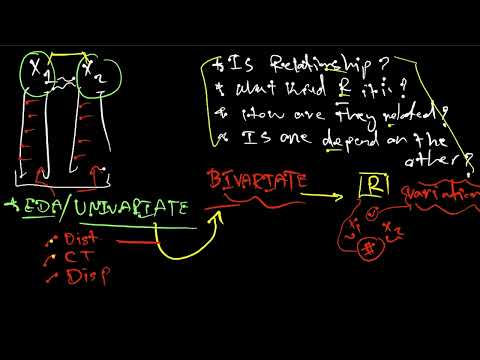 X1 X2
* Is Relationship?
* what kind R it is?
* How are they related?
* Is one depend on the
other?
BIVARIATE
R
variation
* EDA/UNIVARIATE
* Dist
* CT
* Disp
X1 X2
#